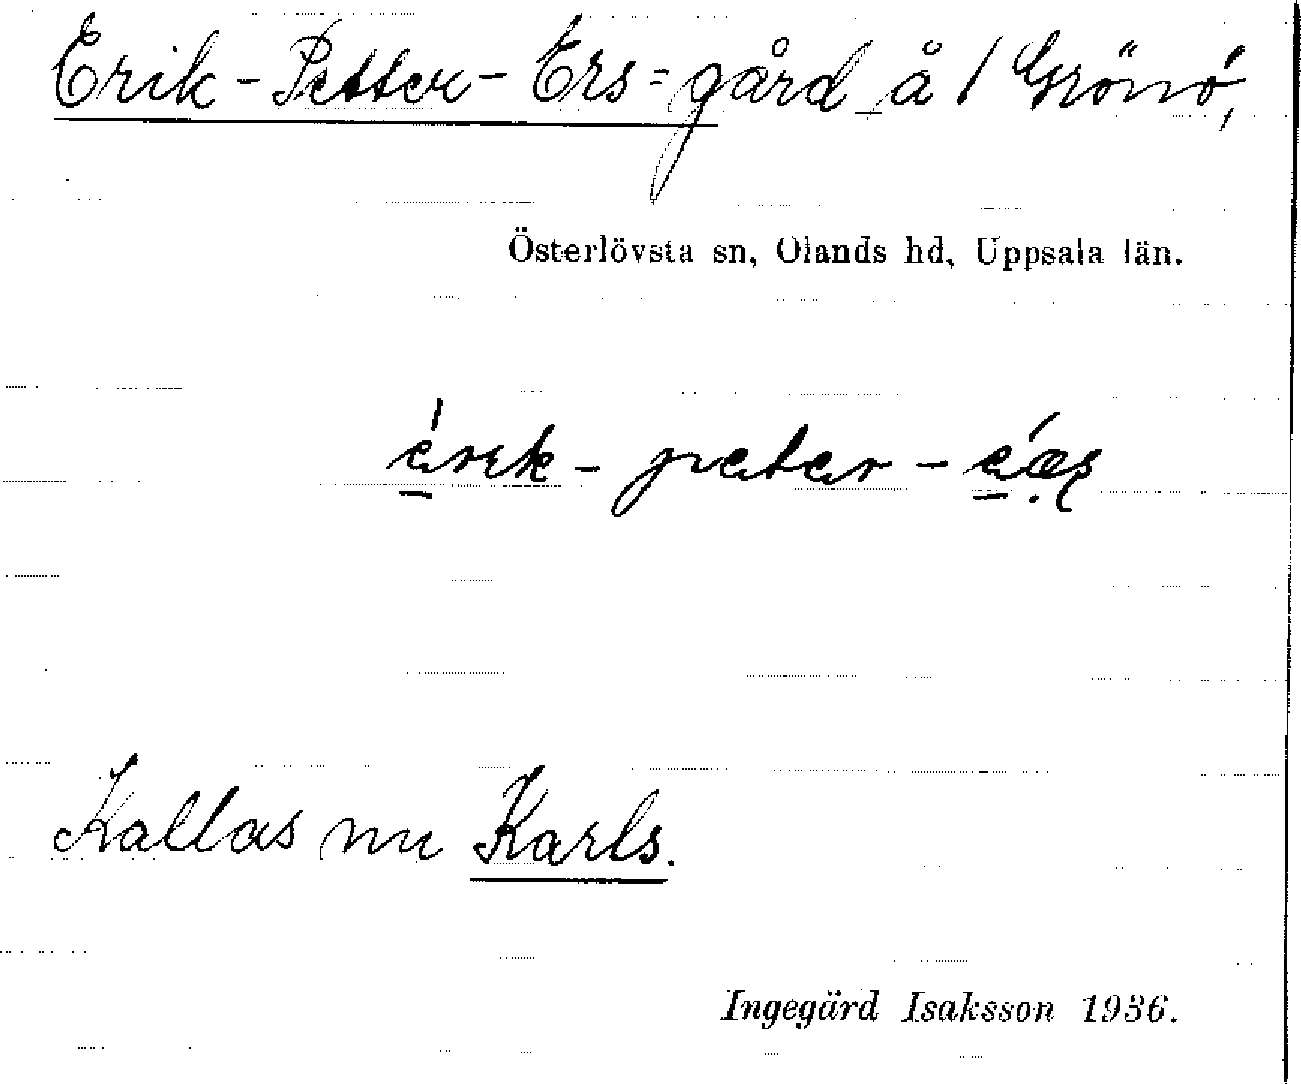 Erik-Petter-Ers=gård å 1 Grönö,
Österlövsta sn, Olands hd, Uppsala län.
Kallas nu Karls.
Ingegärd Isaksson 1936.